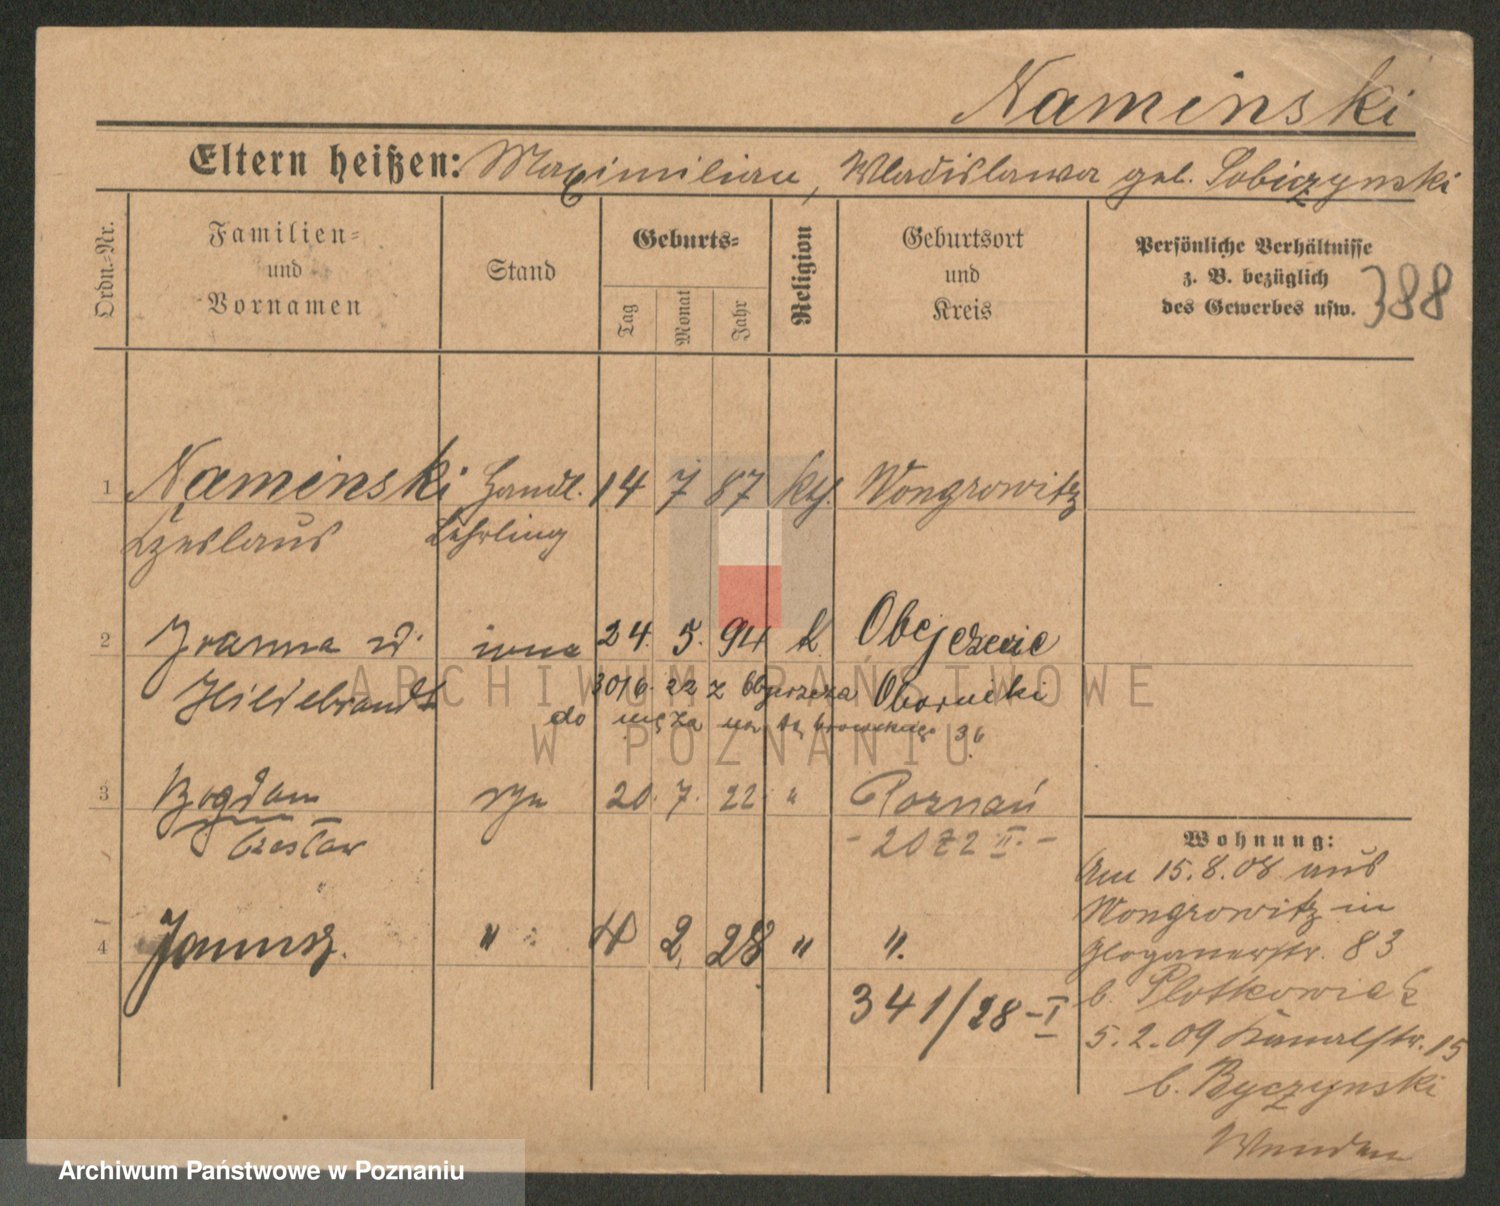 Naminski
Eltern heißen: Maximilian, Wladislawa geb. Sobiczynski
Ordn.-Nr.
Familien-
und
Vornamen
Stand
Geburts-
Tag
Monat
Jahr
Religion
Geburtsort
und
Kreis
Persönliche Verhältnisse
z. B. bezüglich
des Gewerbes usw.
388
1 Naminski Handl. 14 7 87 kth. Wongrowitz
Czeslaus Lehrling
2 Joanna z d. żona 24. 5. 94 k. Objezierze
Hildebrandt 30/6. 22 z Oborniki
do męża na 36
3 Bogdan syn 20. 7. 22. " Poznań
Czesław - 2072 II. -
4 Janusz. " 4 2. 28 " ".
341/28-I
Wohnung:
Am 15.8.08 aus
Wongrowitz in
Glogauerstr. 83
b. Plotkowiak
5.2.09 Kanalstr. 15
b. Byczynski
ARCHIWUM PAŃSTWOWE
W POZNANIU
Archiwum Państwowe w Poznaniu